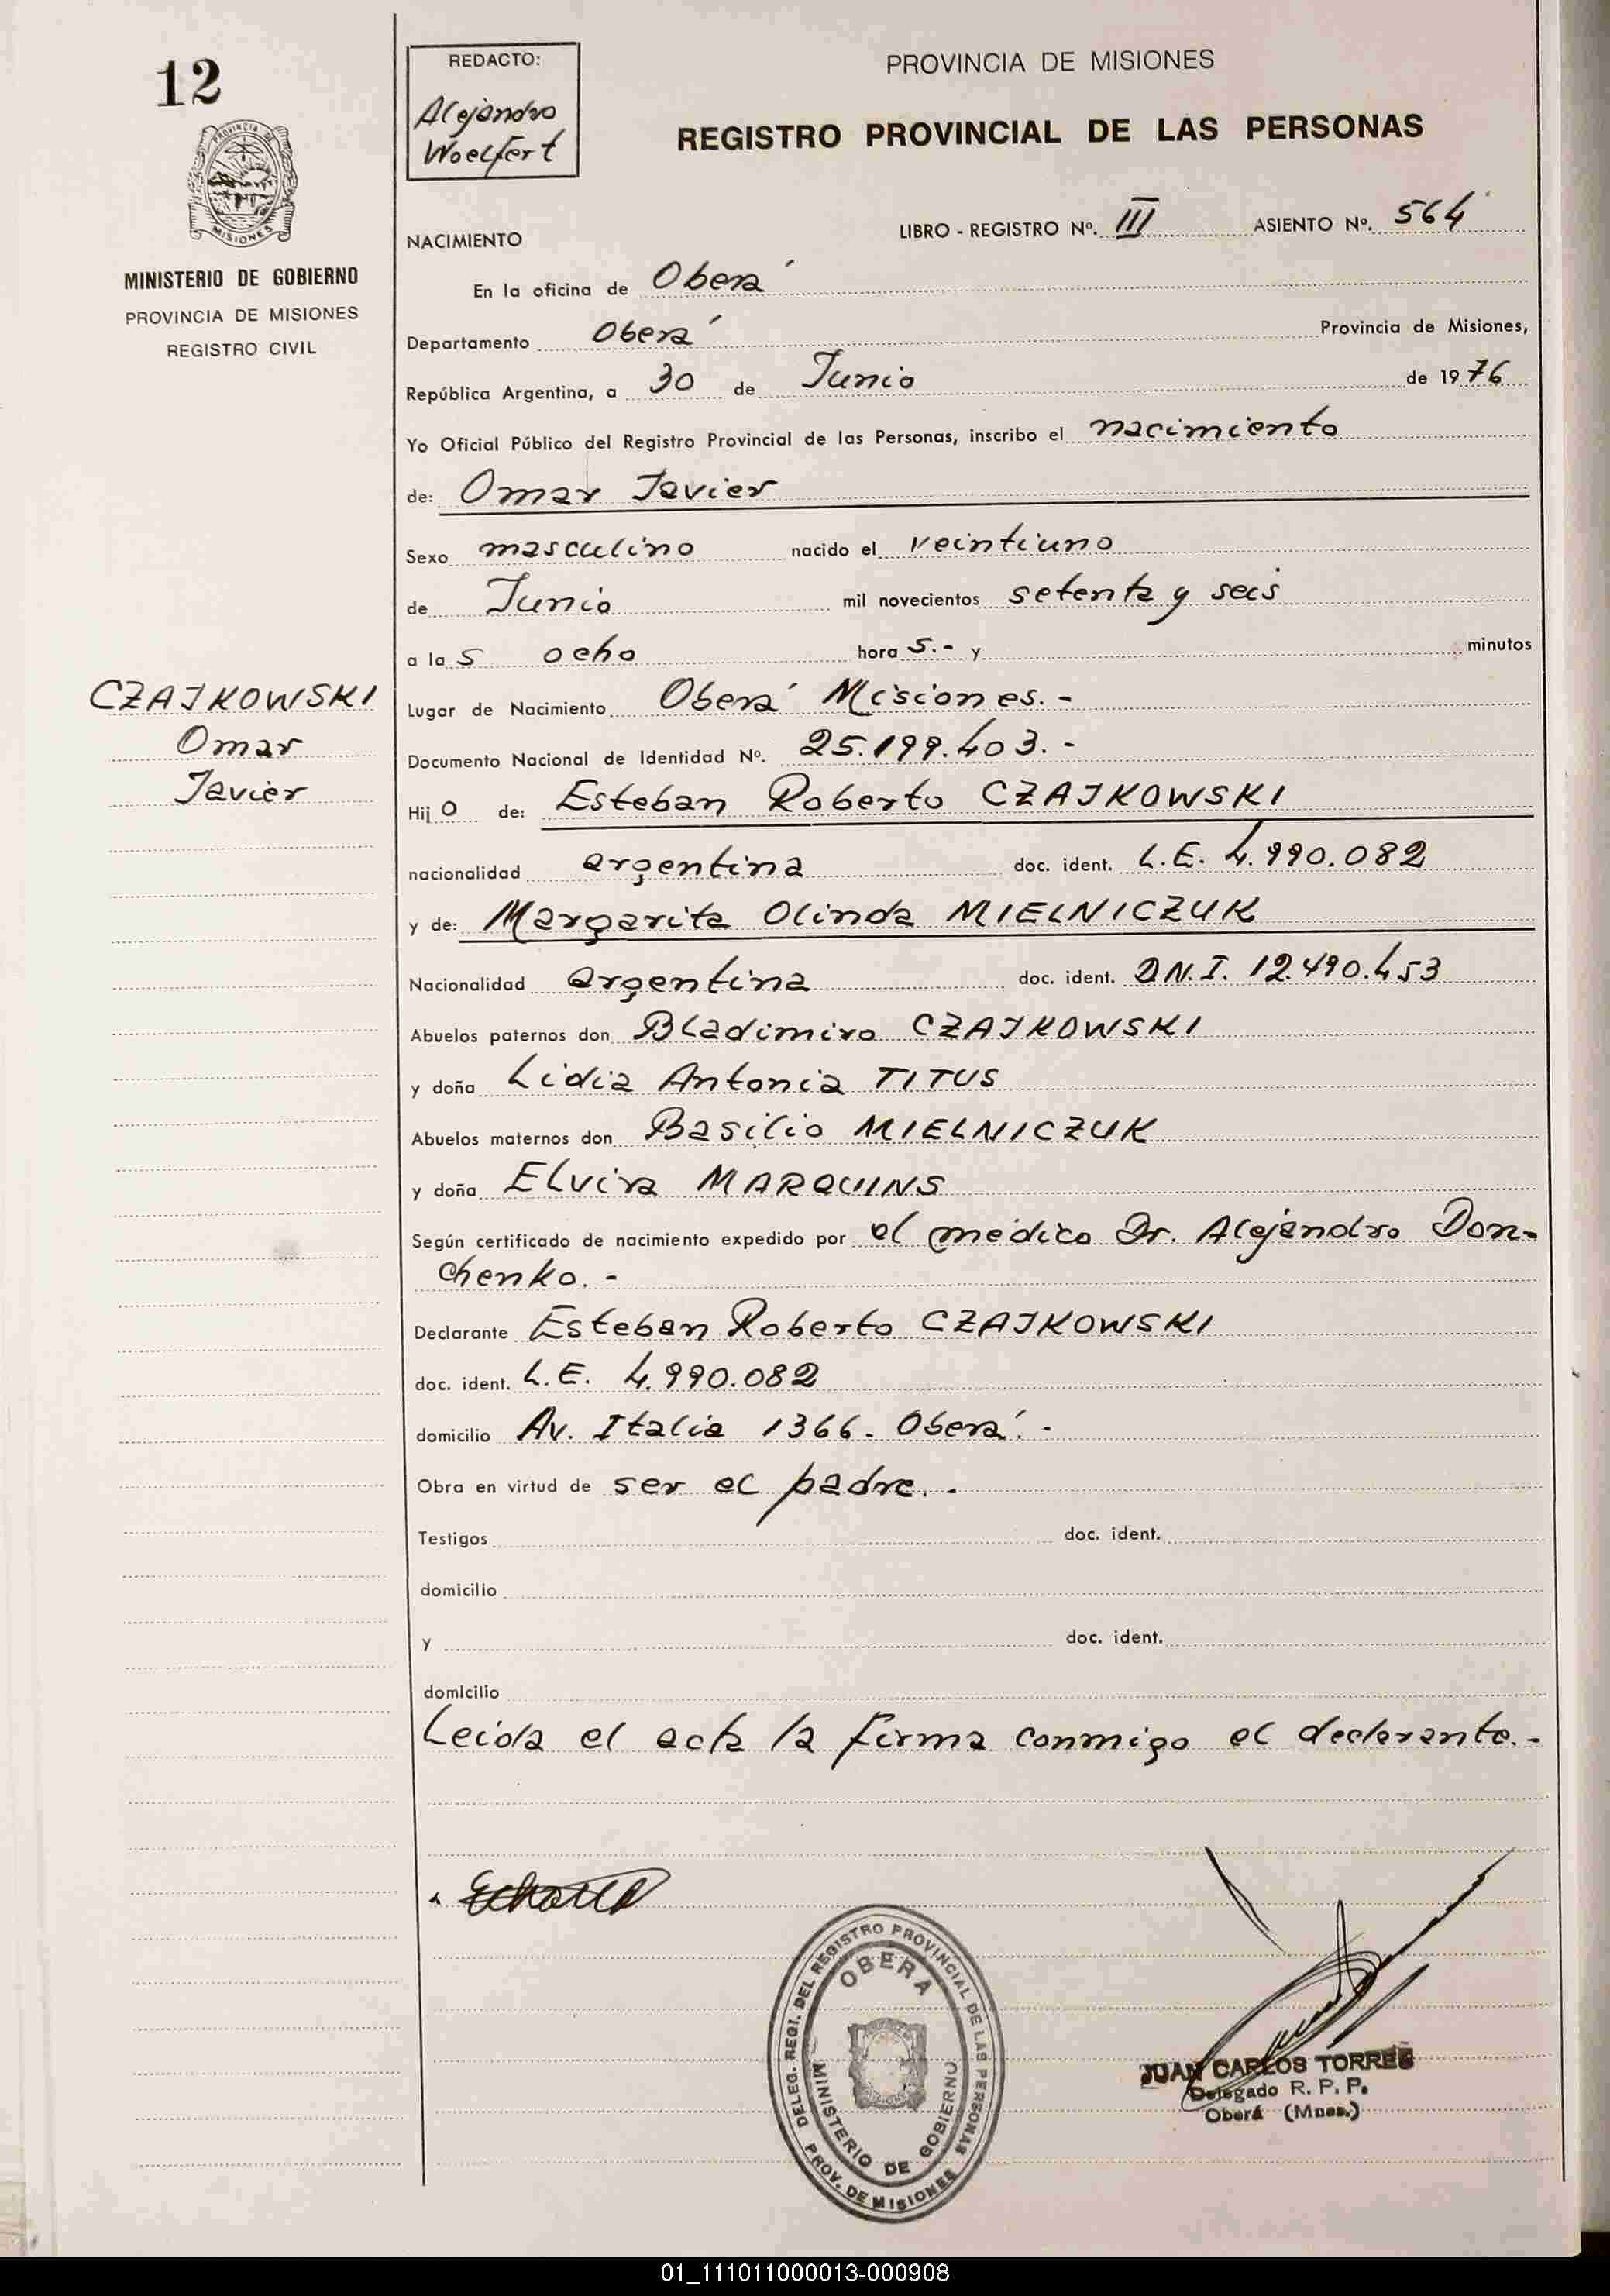 12
PROVINCIA DE
MISIONES
MINISTERIO DE GOBIERNO
PROVINCIA DE MISIONES
REGISTRO CIVIL
CZAJKOWSKI
Omar
Javier
REDACTO:
Alejandro
Woelfert
PROVINCIA DE MISIONES
REGISTRO PROVINCIAL DE LAS PERSONAS
LIBRO - REGISTRO Nº. III ASIENTO Nº. 564
NACIMIENTO
En la oficina de Oberá
Departamento Oberá Provincia de Misiones,
República Argentina, a 30 de Junio de 1976
Yo Oficial Público del Registro Provincial de las Personas, inscribo el nacimiento
de: Omar Javier
Sexo masculino nacido el veintiuno
de Junio mil novecientos setenta y seis
a la s ocho hora s.- y minutos
Lugar de Nacimiento Oberá Misiones.-
Documento Nacional de Identidad Nº. 25.199.403.-
Hij o de: Esteban Roberto CZAJKOWSKI
nacionalidad argentina doc. ident. L.E. 4.990.082
y de: Margarita Olinda MIELNICZUK
Nacionalidad argentina doc. ident. D.N.I. 12.490.453
Abuelos paternos don Bladimiro CZAJKOWSKI
y doña Lidia Antonia TITUS
Abuelos maternos don Basilio MIELNICZUK
y doña Elvira MARQUINS
Según certificado de nacimiento expedido por el médico Dr. Alejandro Don-
chenko.-
Declarante Esteban Roberto CZAJKOWSKI
doc. ident. L.E. 4.990.082
domicilio Av. Italia 1366. Oberá.-
Obra en virtud de ser el padre.-
Testigos doc. ident.
domicilio
y doc. ident.
domicilio
Leida el acta la firma conmigo el declarante.-
DELEG. REGI. DEL REGISTRO PROVINCIAL DE LAS PERSONAS
OBERA
MINISTERIO DE GOBIERNO
PROV. DE MISIONES
JUAN CARLOS TORRES
Delegado R. P. P.
Oberá (Mnes.)
01_111011000013-000908